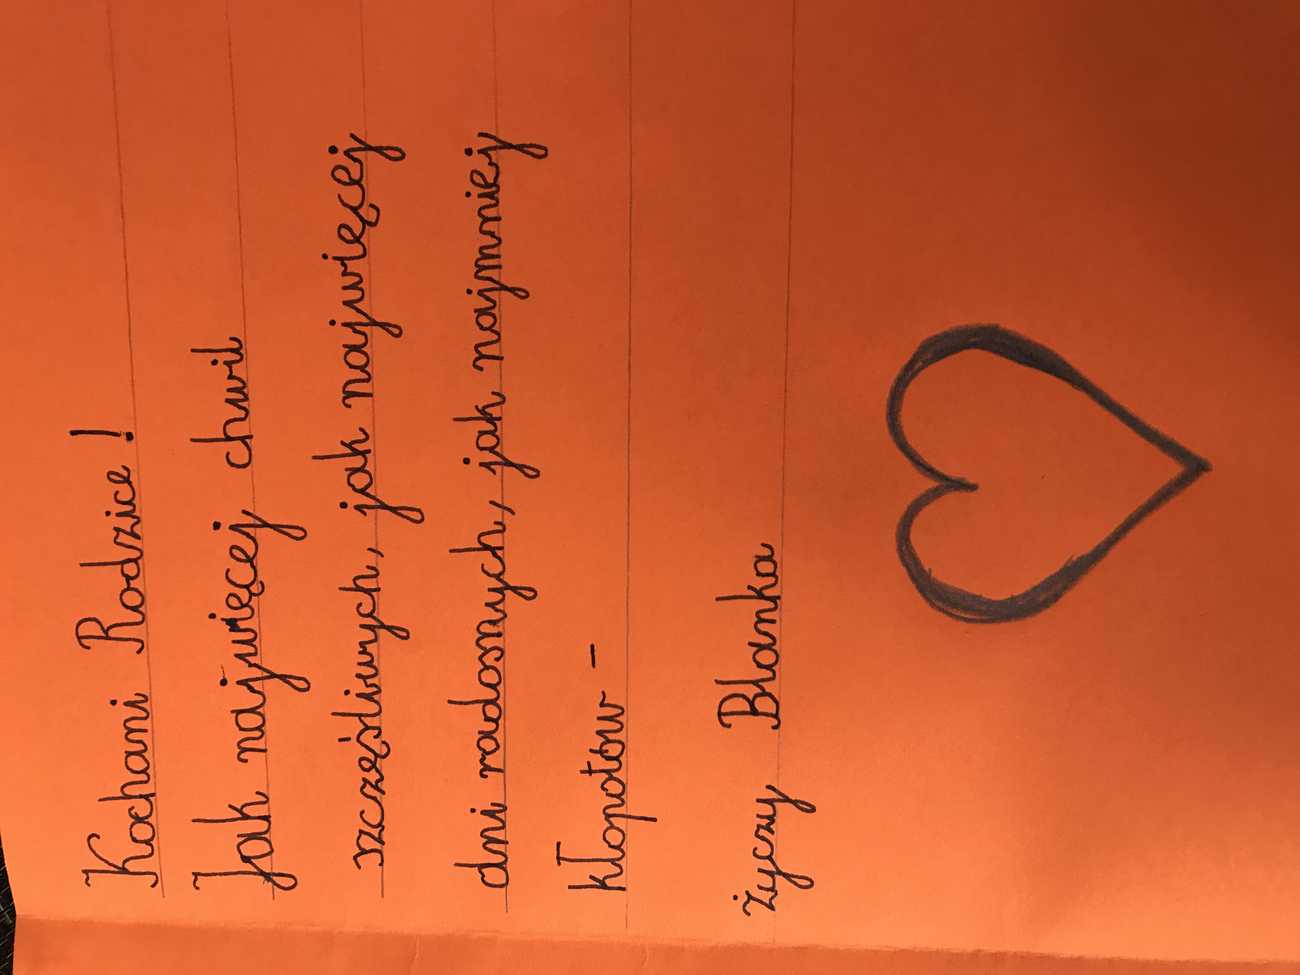 Kochani Rodzice!
Jak najwięcej chwil
szczęśliwych, jak najwięcej
dni radosnych, jak najmniej
kłopotów -
życzy Blanka